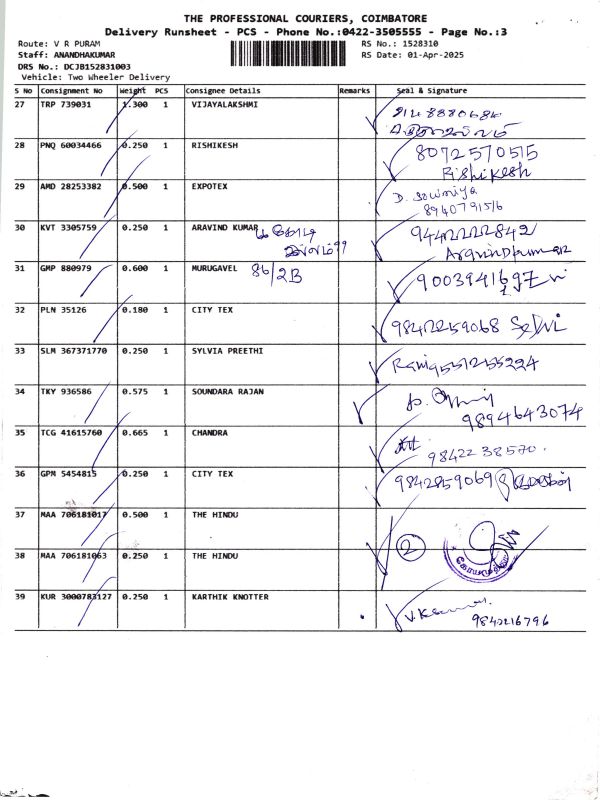 THE PROFESSIONAL COURIERS, COIMBATORE
Delivery Runsheet - PCS - Phone No.:0422-3505555 - Page No.:3
Route: V R PURAM
RS No.: 1528310
Staff: ANANDHAKUMAR
RS Date: 01-Apr-2025
DRS No.: DCJB152831003
Vehicle: Two Wheeler Delivery
S No Consignment No Weight PCS Consignee Details Remarks Seal & Signature
27 TRP 739031 1.300 1 VIJAYALAKSHMI
28 PNQ 60034466 0.250 1 RISHIKESH 8072570515
Rishikesh
29 AMD 28253382 0.500 1 EXPOTEX D. Sowmiya
8940791516
30 KVT 3305759 0.250 1 ARAVIND KUMAR 9442222842
Aravindkumar
31 GMP 880979 0.600 1 MURUGAVEL 86/2B
32 PLN 35126 0.180 1 CITY TEX 9842259068 Selvi
33 SLM 367371770 0.250 1 SYLVIA PREETHI Rani 9551255224
34 TKY 936586 0.575 1 SOUNDARA RAJAN
9894643074
35 TCG 41615760 0.665 1 CHANDRA
9842238570
36 GPM 5454815 0.250 1 CITY TEX 9842259069
37 MAA 706181017 0.500 1 THE HINDU
2
38 MAA 706181063 0.250 1 THE HINDU
39 KUR 3000783127 0.250 1 KARTHIK KNOTTER
9842216796